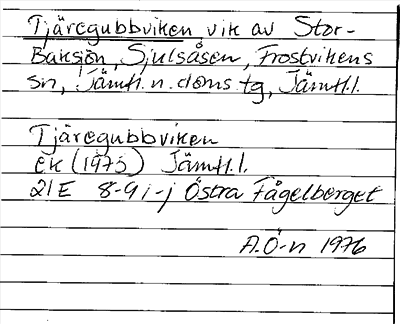 Tjäregubbviken vik av Stor-
Baksjön, Sjulsåsen, Frostvikens
sn, Jämtl. n. doms. tg, Jämtl. l.
Tjäregubbviken
ek (1975) Jämtl. l.
21E 8-9 i-j Östra Fågelberget
A.Ö-n 1976